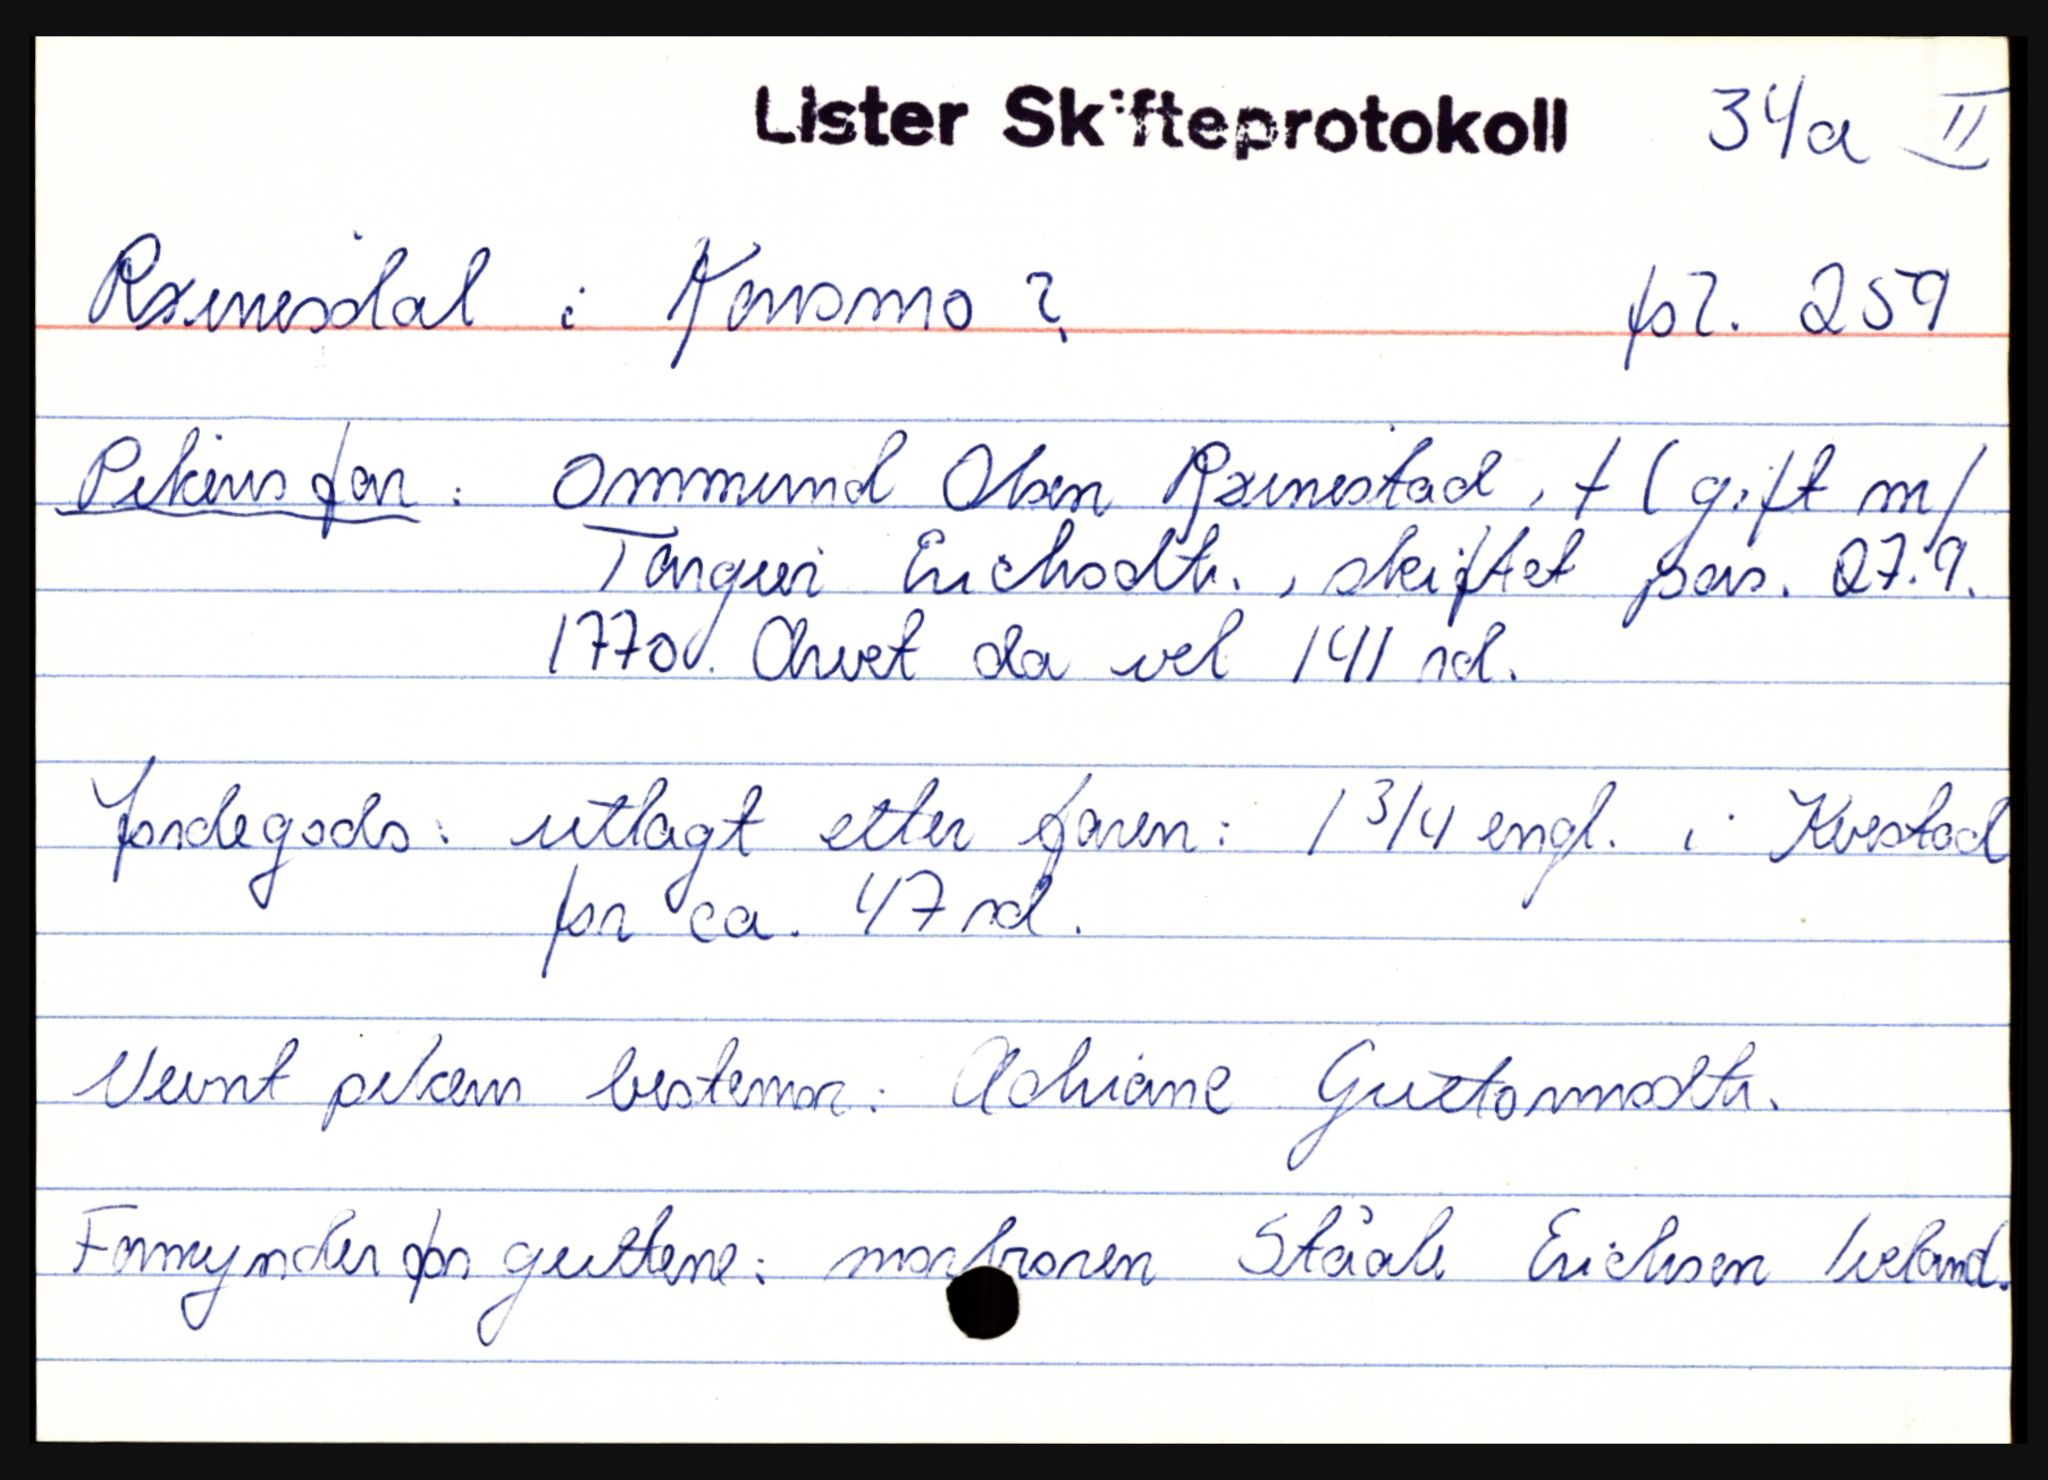 Lister Skifteprotokoll 34a II
Røinesdal i Konsmo? fol. 259
Pikens far: Ommund Olsen Røinestad, † (gift m/
Torguri Erichsdtr., skiftet pas. 27.9.
1770. Arvet da vel 141 rd.
Jordegods: utlagt etter faren: 1 3/4 engl. i Kvestad
for ca. 47 rd.
Nevnt piken bestemor: Adriane Guttormsdtr.
Formynder for guttene: morbroren Ståale Erichsen Iveland.